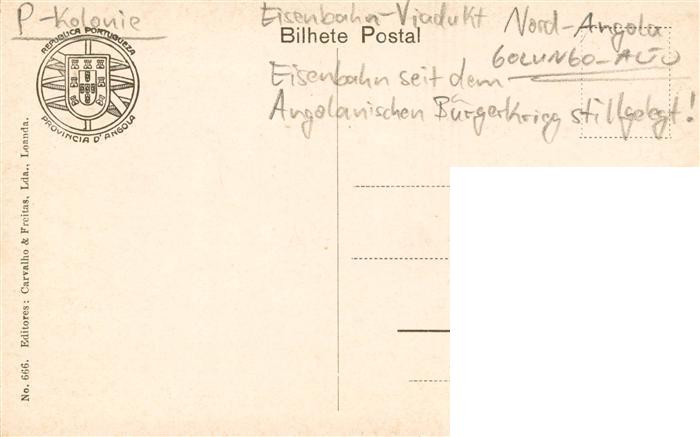 P-Kolonie
Eisenbahn-Viadukt Nord-Angola
Bilhete Postal
GOLUNGO-ALTO
Eisenbahn seit dem
Angolanischen Bürgerkrieg stillgelegt!
REPUBLICA PORTUGUEZA
PROVINCIA D'ANGOLA
No. 666. Editores: Carvalho & Freitas, Lda., Loanda.